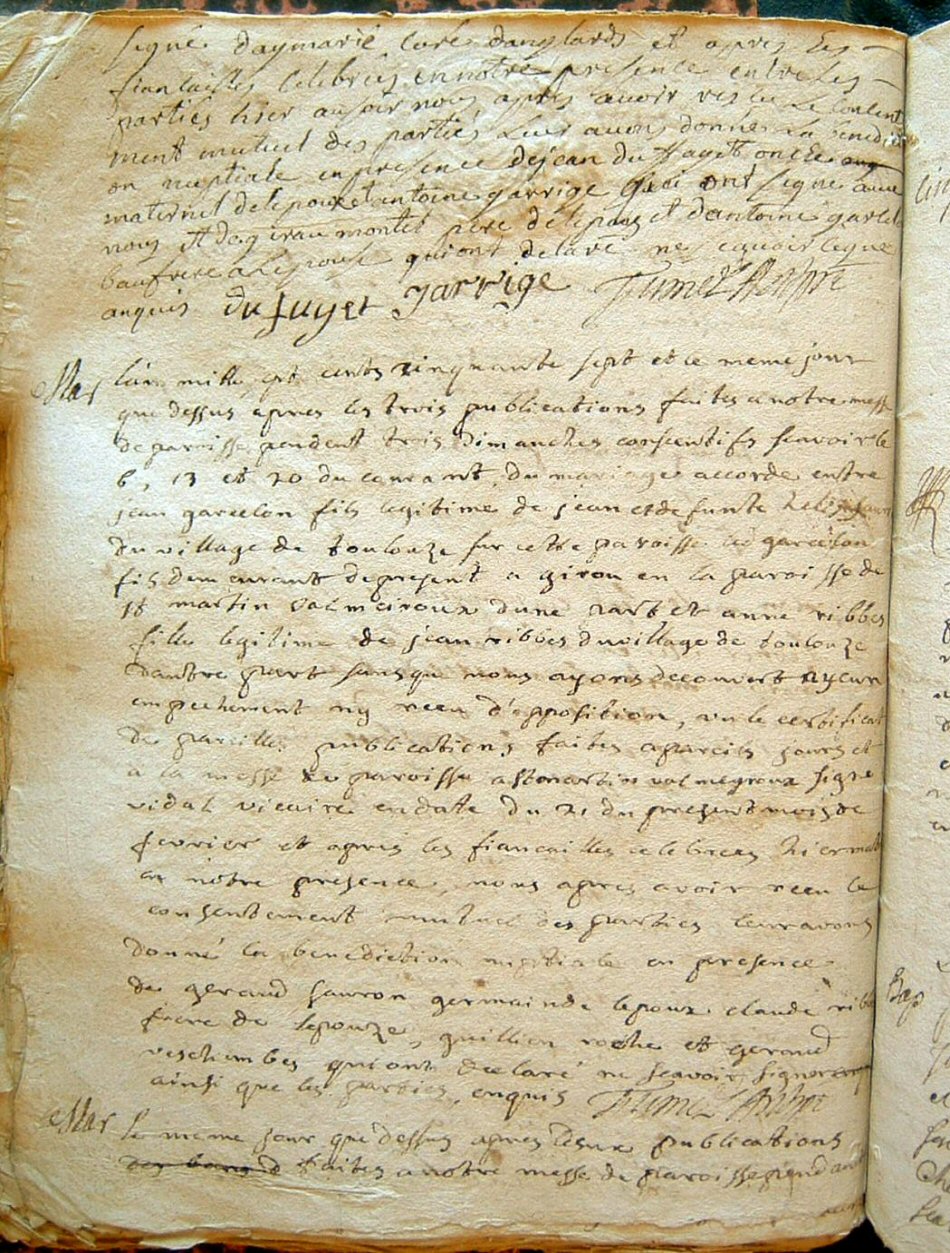 signé daymarie curé danglards et apres les
fiancailles celebrées en notre presence entre les
parties hier au soir nous apres avoir reseu le consent
ment mutuel des parties leur avons donné la benedicti
on nuptiale en presence de jean du fayet oncle
maternel de lepouze et antoine garrige qui ont signé avec
nous et de giran montet pere de lepouz et dantoine garcel
baufrere a lespouse qui ont delaré ne scavoir signe
enquis du fayet garrige
Mar lan mille sept cents cinquante sept et ce meme jour
que dessus apres les trois publications faites a notre messe
de paroisse pendent trois dimanches consecutifs scavoir le
6, 13 et 20 du courant, du mariage accordé entre
jean garcelon fils legitime de jean et defunte
du village de toulouze sur cette paroisse led garcelon
fils demeurant de present a girou en la paroisse de
st martin valmeiroux dune part et anne ribbes
fille legitime de jean ribbes du village de toulouze
dautre part sans que nous ayons decouvert aucun
empechement ny receu d'opposition, vu le certificat
de pareilles publications faites a pareils jours et
a la messe de paroisse a st martin valmeyroux signé
vidal vicaire en datte du 21 du present mois de
fevrier et apres les fiancailles celebrees hier
en nôtre presence, nous apres avoir receu le
consentement mutuel des parties leur avons
donné la benediction nuptiale en presence
de geraud sauron germain de lepoux claude rib
frere de lepouze, guillien roche et geraud
veschambes qui ont declaré ne scavoir signer
ainsi que les parties, enquis
Mar le meme jour que dessus apres publications
faites a notre messe de paroisse pendant